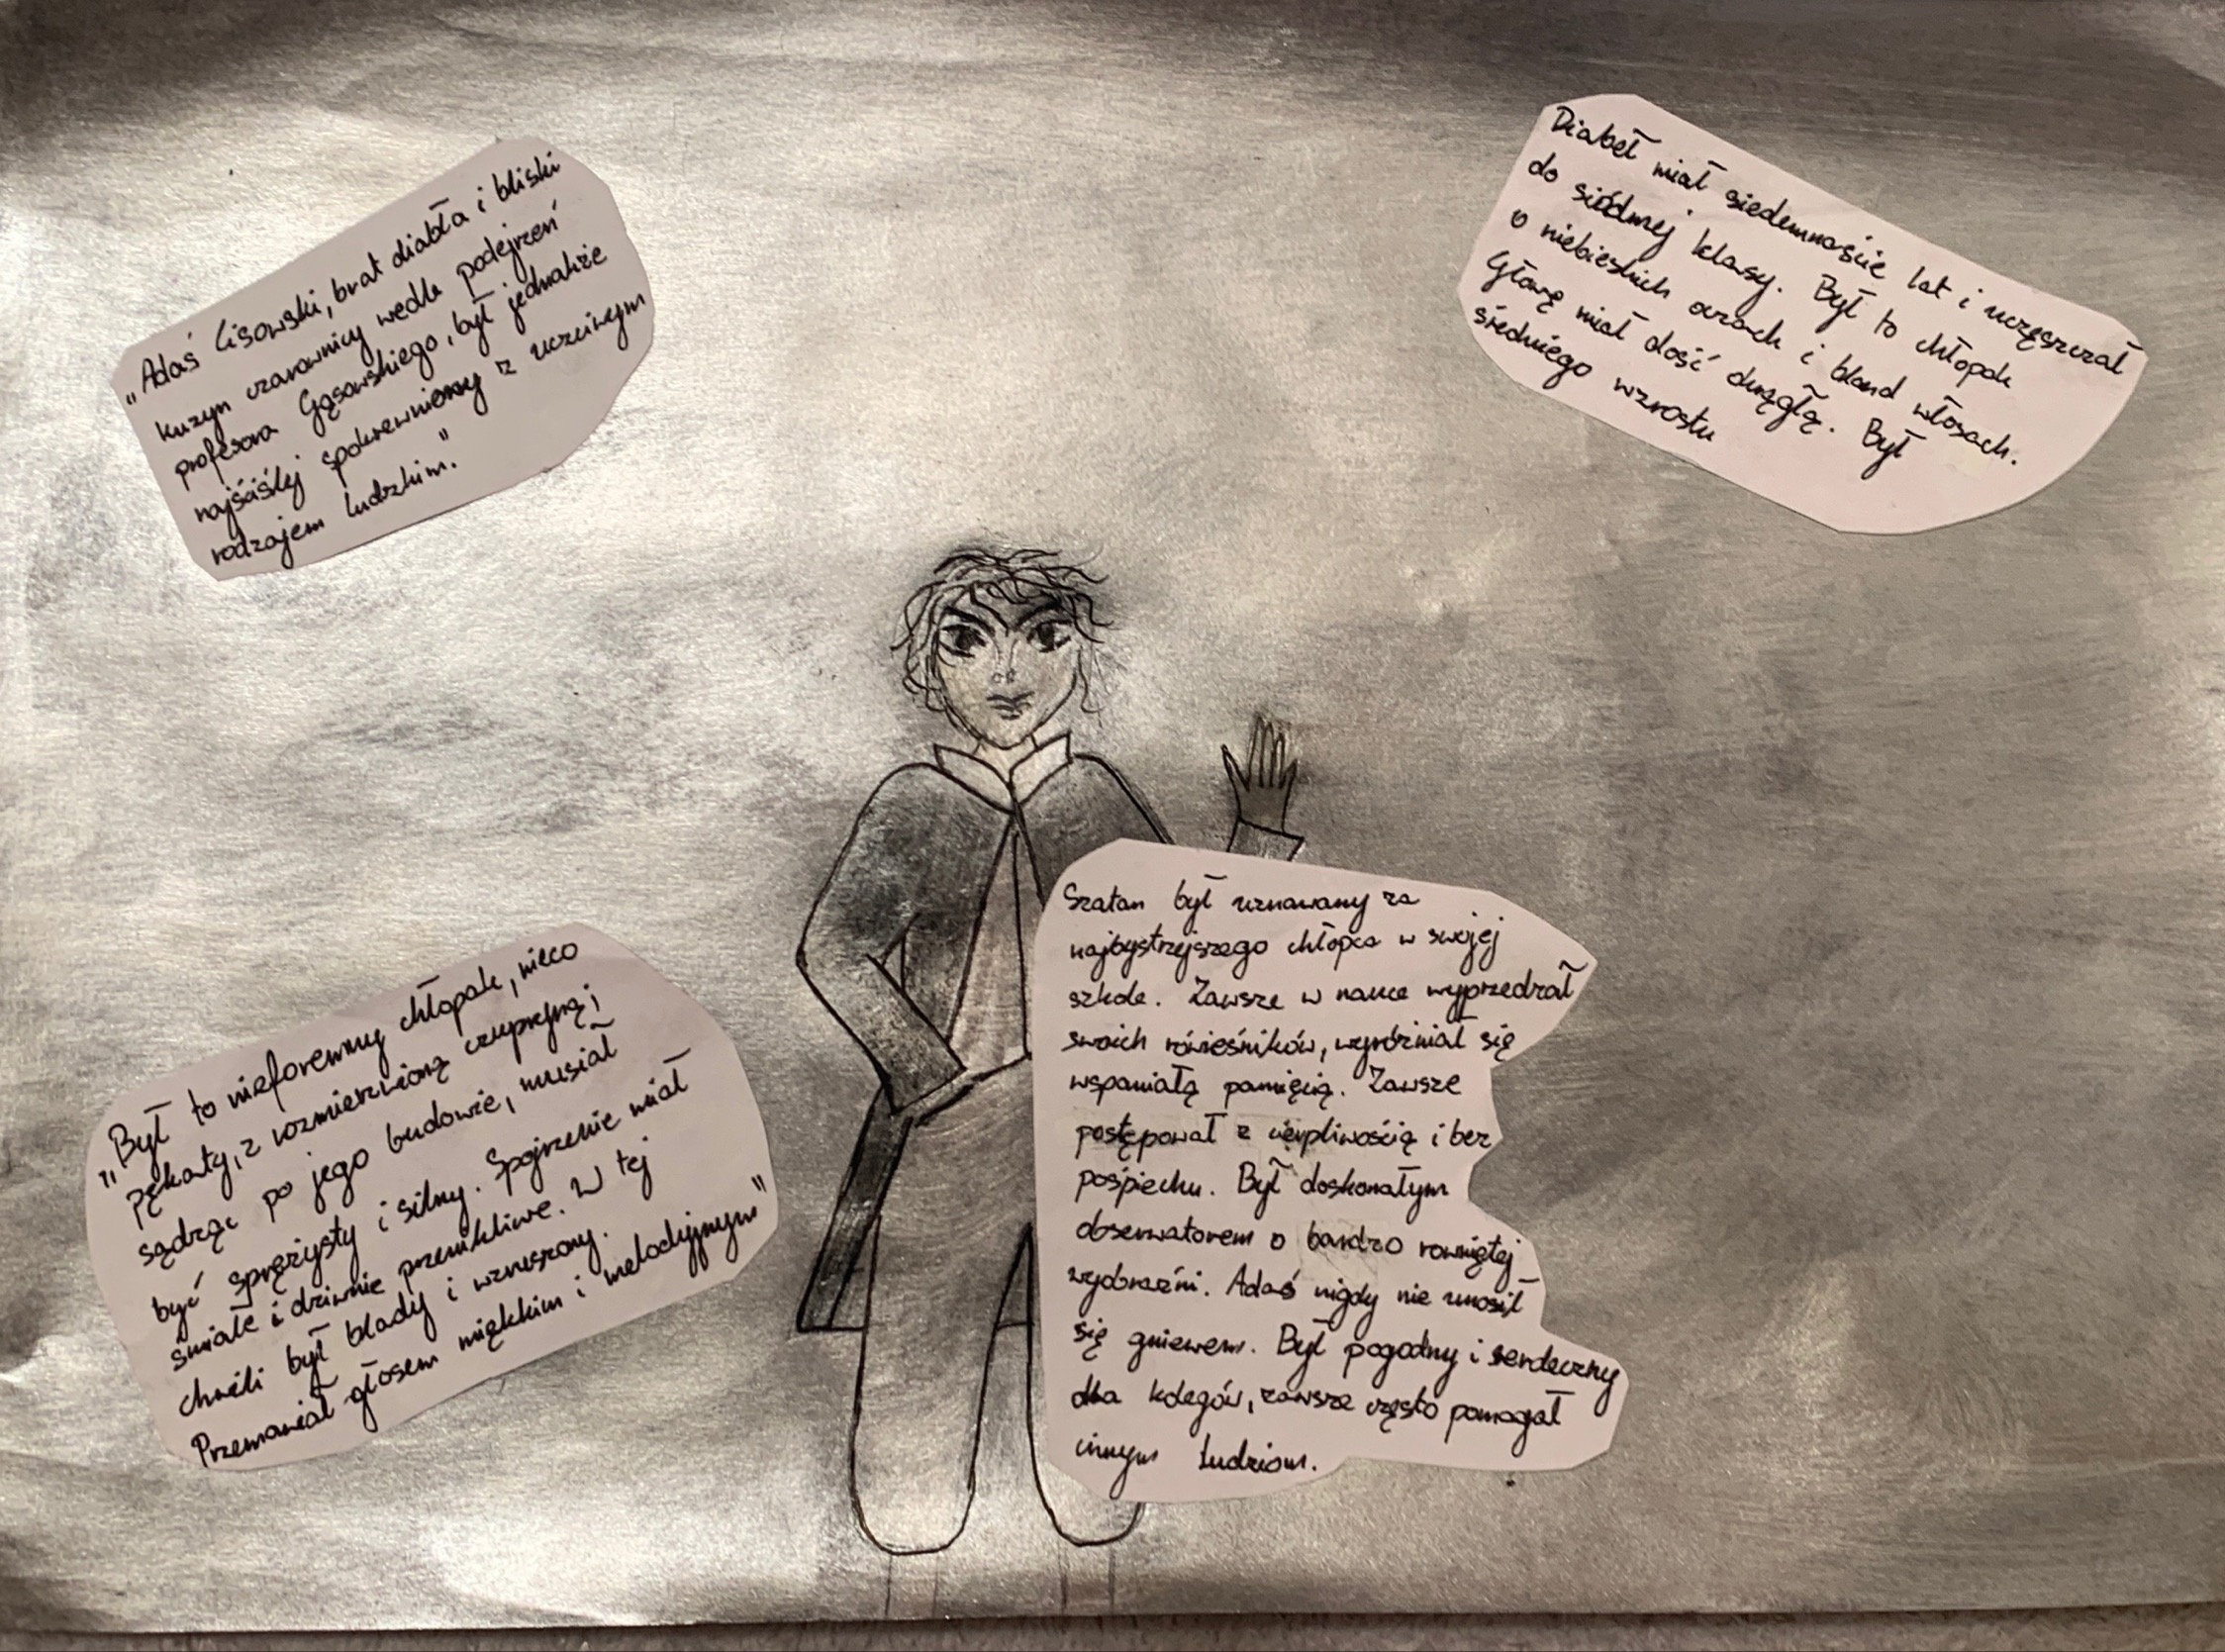 "Adaś Cisowski, brat diabła i bliski
kuzyn czarownicy wedle podejrzeń
profesora Gąsowskiego, był jednakże
najściślej spokrewniony z uczciwym
rodzajem ludzkim."
Diabeł miał siedemnaście lat i uczęszczał
do siódmej klasy. Był to chłopak
o niebieskich oczach i blond włosach.
Głowę miał dość okrągłą. Był
średniego wzrostu
"Był to nieforemny chłopak, nieco
pękaty, z rozmierzwioną czupryną;
sądząc po jego budowie, musiał
być sprężysty i silny. Spojrzenie miał
śmiałe i dziwnie przenikliwe. W tej
chwili był blady i wzruszony.
Przemawiał głosem miękkim i melodyjnym"
Szatan był uznawany za
najbystrzejszego chłopca w swojej
szkole. Zawsze w nauce wyprzedzał
swoich rówieśników, wyróżniał się
wspaniałą pamięcią. Zawsze
postępował z cierpliwością i bez
pośpiechu. Był doskonałym
obserwatorem o bardzo rowniętej
wyobraźni. Adaś nigdy nie unosił
się gniewem. Był pogodny i serdeczny
dla kolegów, zawsze często pomagał
innym ludziom.